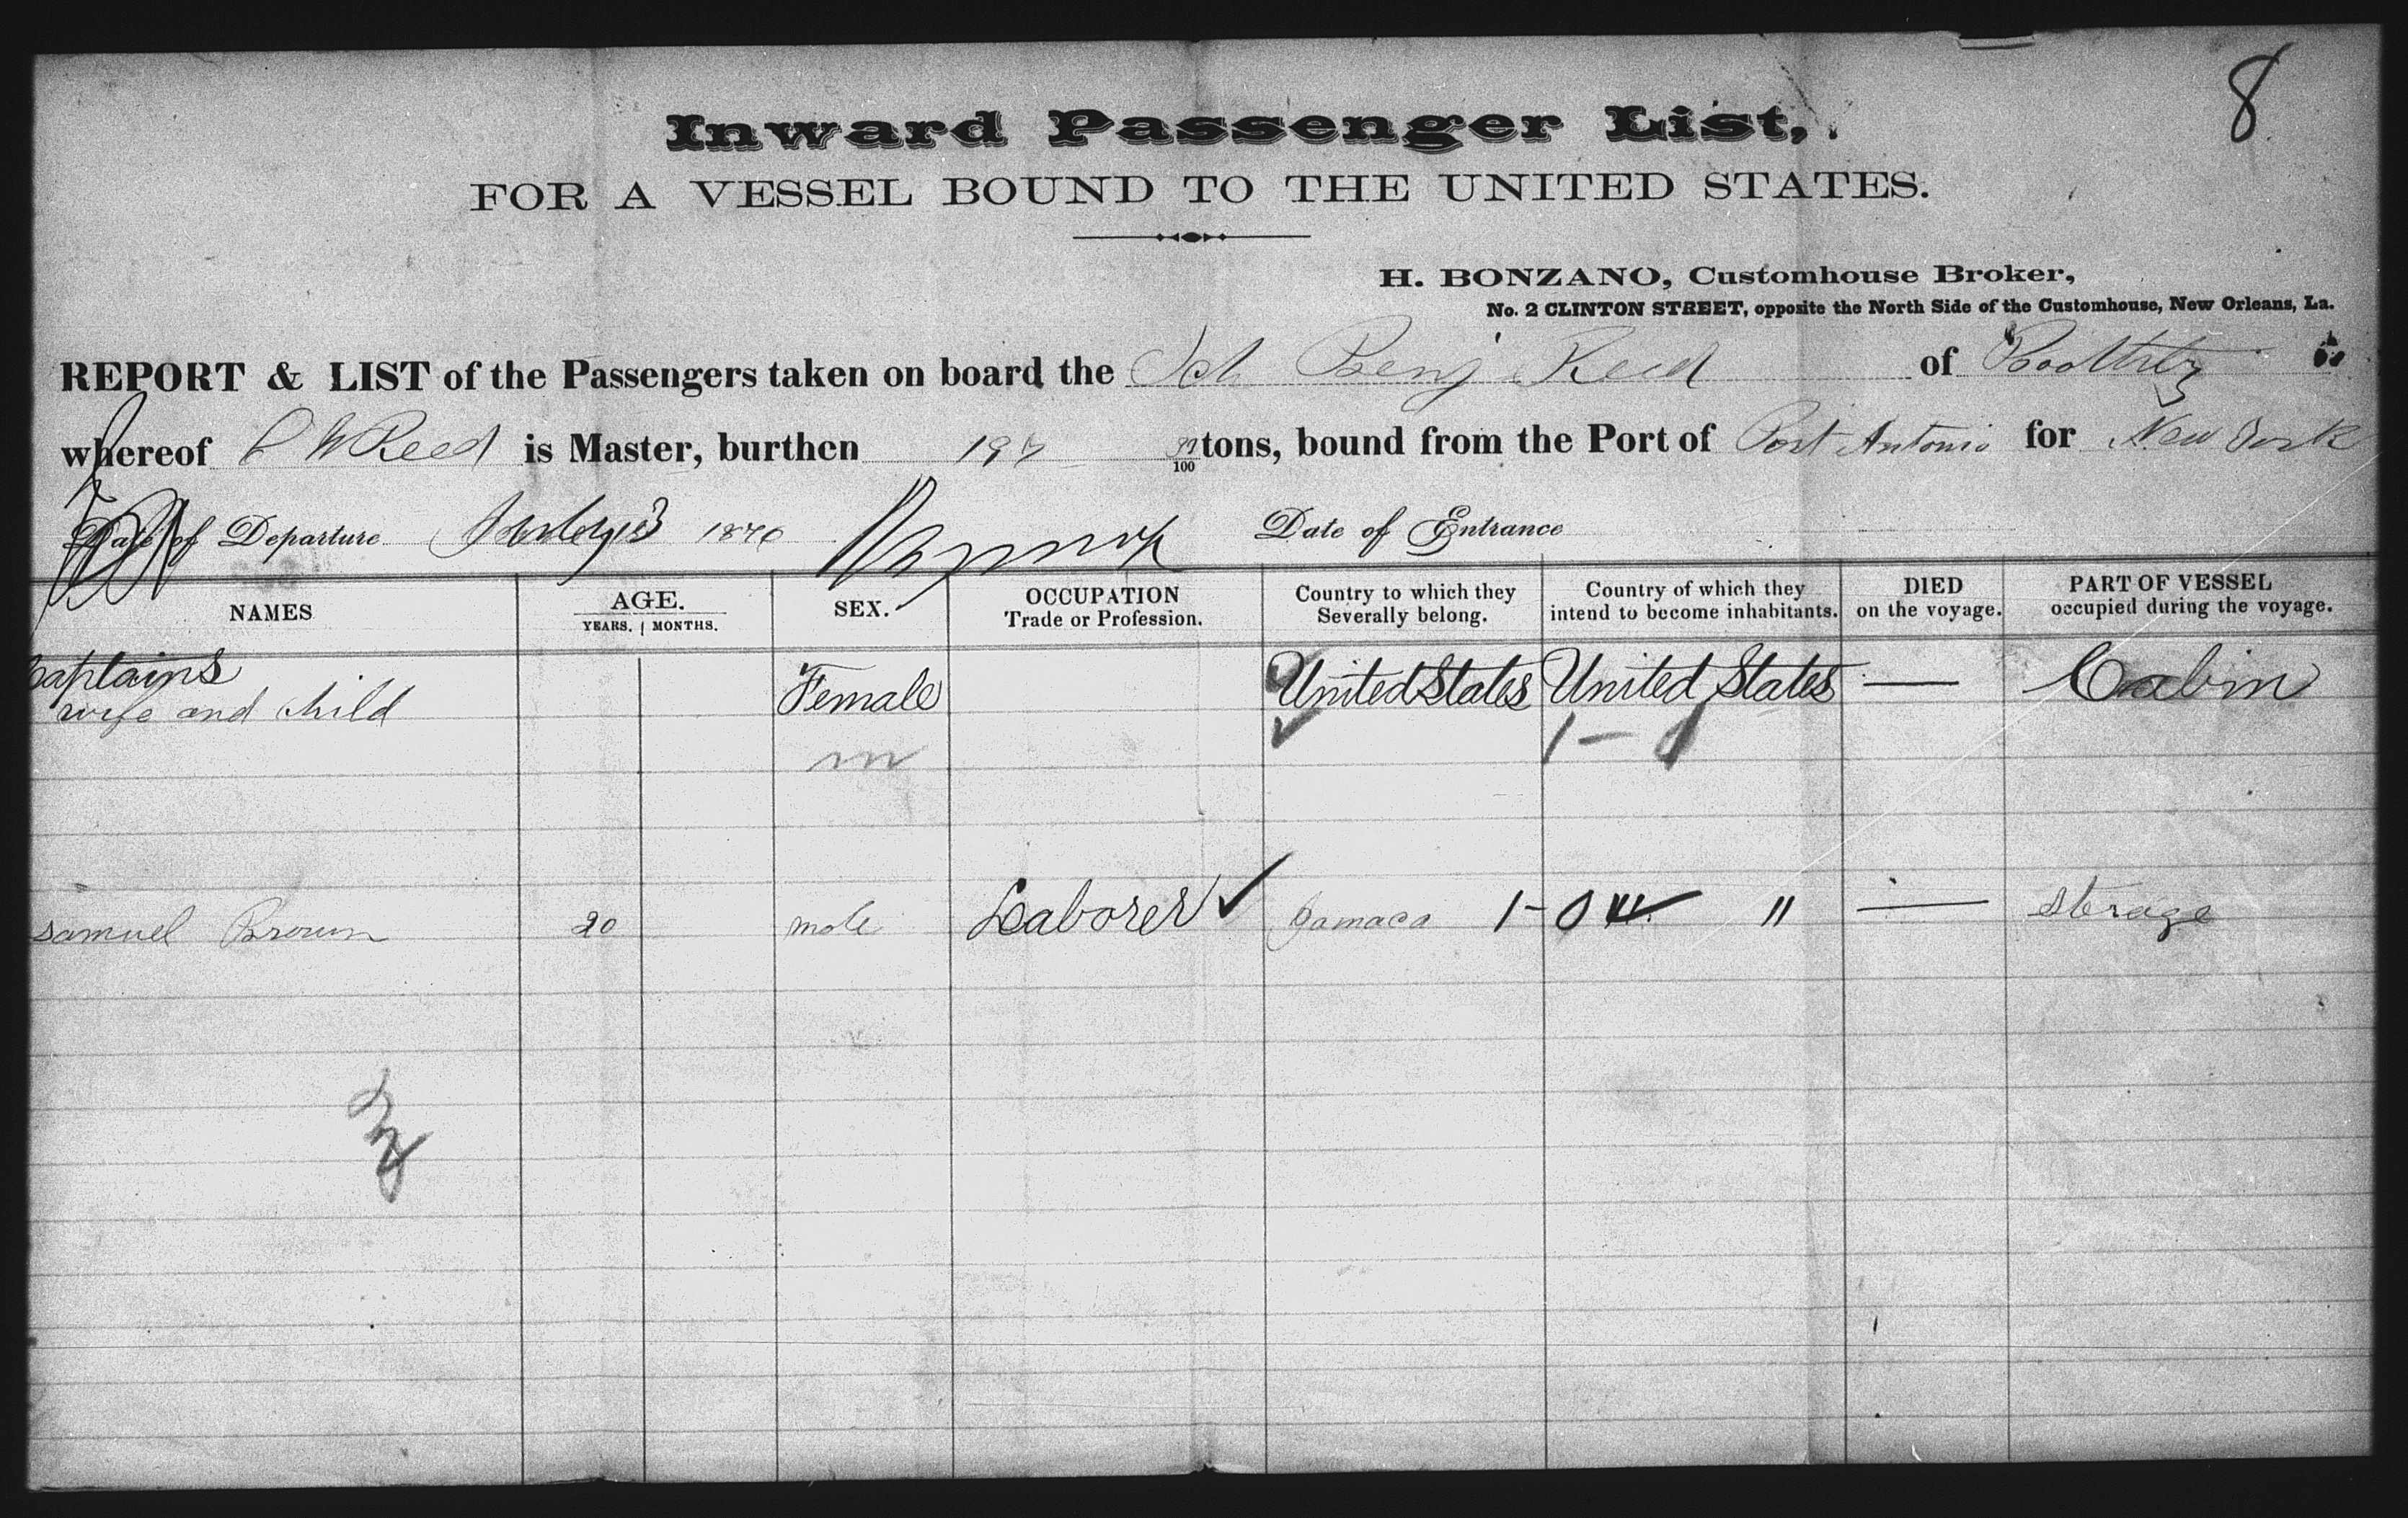 8
Inward Passenger List,
FOR A VESSEL BOUND TO THE UNITED STATES.
H. BONZANO, Customhouse Broker,
No. 2 CLINTON STREET, opposite the North Side of the Customhouse, New Orleans, La.
REPORT & LIST of the Passengers taken on board the Sch Benj Reed of
whereof C W Reed is Master, burthen 197 100 tons, bound from the Port of Port Antonio for New York
Date of Departure 1876 Date of Entrance
NAMES AGE. YEARS. MONTHS. SEX. OCCUPATION Trade or Profession. Country to which they Severally belong. Country of which they intend to become inhabitants. DIED on the voyage. PART OF VESSEL occupied during the voyage.
Captains Female United States United States — Cabin
wife and child
m 1 -
Samuel Brown 20 male Laborer Jamaca 1- 0 " — sterage